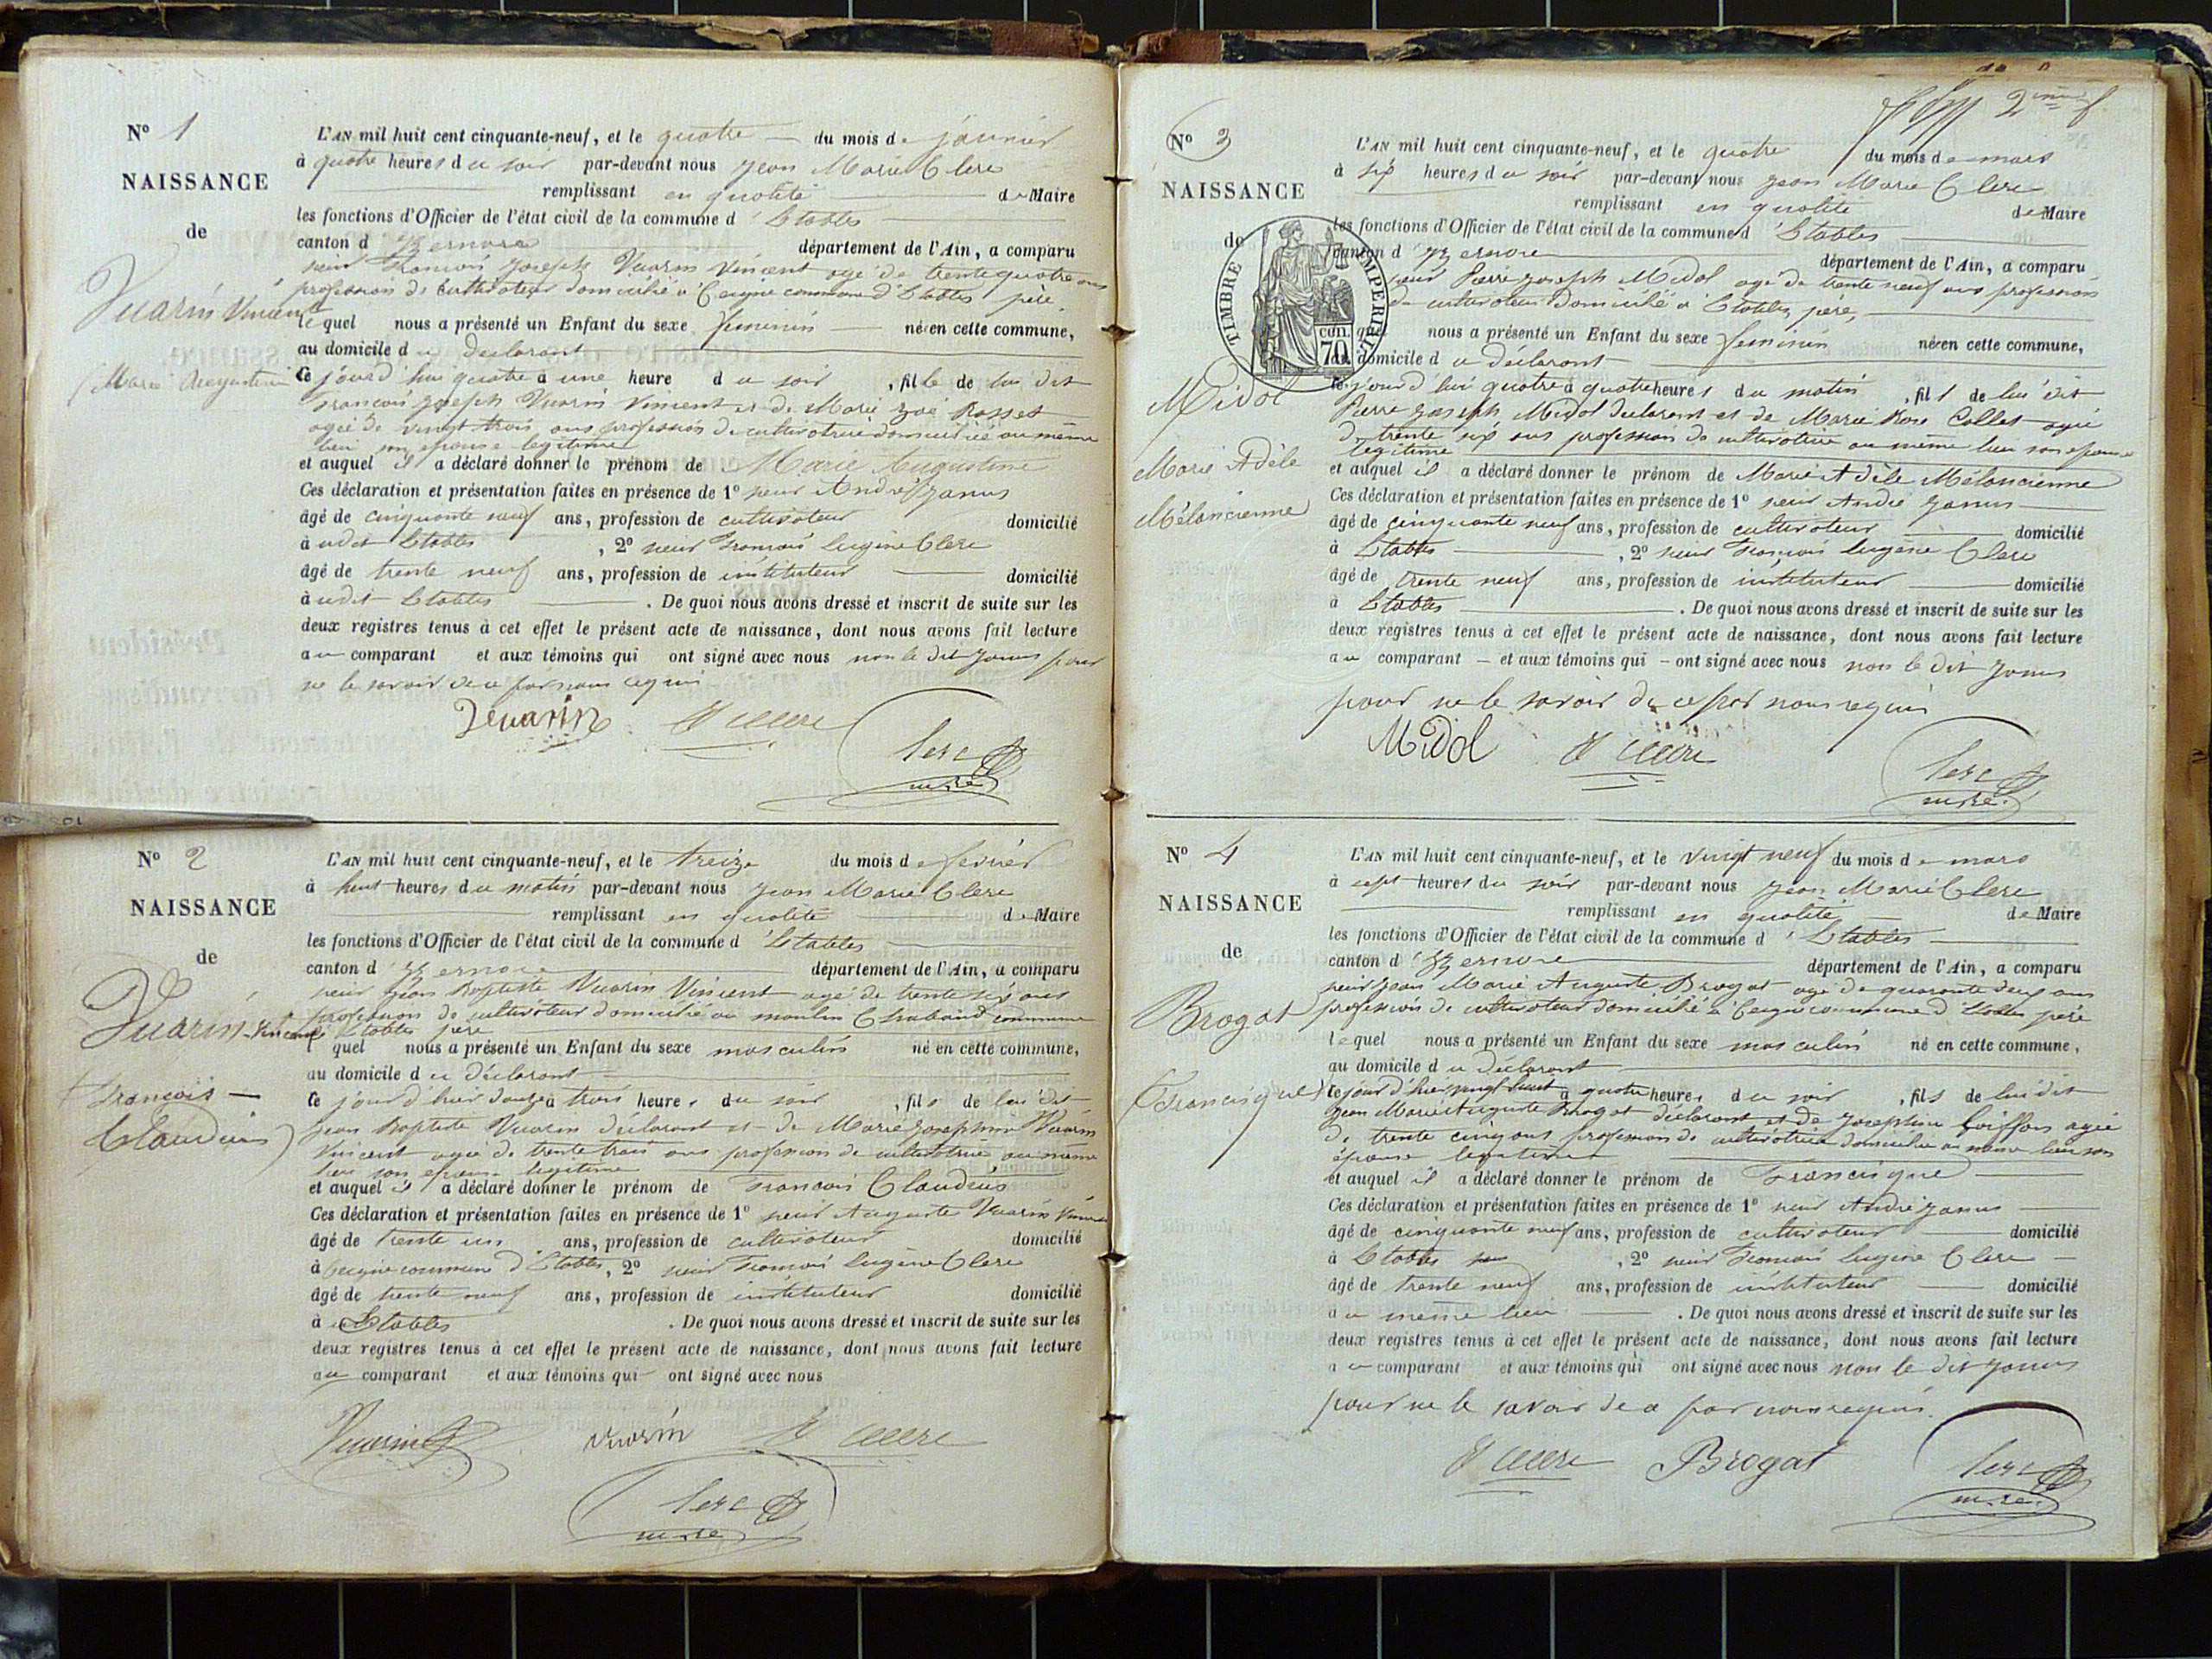 N° 1
NAISSANCE
de
Vuarin Vincent
(Marie Augustine
L'AN mil huit cent cinquante-neuf, et le quatre du mois de janvier
à quatre heures du soir par-devant nous Jean Marie Clerc
remplissant en qualité de Maire
les fonctions d'Officier de l'état civil de la commune d'Etables
canton d'Izernore département de l'Ain, a comparu
sieur François Joseph Vuarin Vincent agé de trente quatre ans
profession de cultivateur domicilié à Ceigne commune d'Etables père
lequel nous a présenté un Enfant du sexe feminin née en cette commune,
au domicile du declarant
Ce jourd'hui quatre à une heure du soir, fille de lui dit
François Joseph Vuarin Vincent et de Marie Zoé Rosset
agée de vingt trois ans profession de cultivatrice domiciliée au même
lieu son épouse legitime
et auquel il a déclaré donner le prénom de Marie Augustine
Ces déclaration et présentation faites en présence de 1° sieur André Janus
âgé de cinquante neuf ans, profession de cultivateur domicilié
à udit Etables, 2° sieur François Eugène Clerc
âgé de trente neuf ans, profession de instituteur domicilié
à udit Etables. De quoi nous avons dressé et inscrit de suite sur les
deux registres tenus à cet effet le présent acte de naissance, dont nous avons fait lecture
au comparant et aux témoins qui ont signé avec nous non le dit Janus pour
ne le savoir de ce par nous requis
Vuarin E Clerc
Clerc
maire
N° 2
NAISSANCE
de
Vuarin-Vincent
(François
Claudius)
L'AN mil huit cent cinquante-neuf, et le treize du mois de fevrier
à huit heures du matin par-devant nous Jean Marie Clerc
remplissant en qualité de Maire
les fonctions d'Officier de l'état civil de la commune d'Etables
canton d'Izernore département de l'Ain, a comparu
sieur Jean Baptiste Vuarin Vincent agé de trente six ans
profession de cultivateur domicilié au moulin Chabaud commune
d'Etables père
lequel nous a présenté un Enfant du sexe masculin né en cette commune,
au domicile du déclarant
Ce jour d'hier douze à trois heures du soir, fils de lui dit
Jean Baptiste Vuarin déclarant et de Marie Josephine Vuarin
Vincent agée de trente trois ans profession de cultivatrice au même
lieu son épouse legitime
et auquel il a déclaré donner le prénom de François Claudius
Ces déclaration et présentation faites en présence de 1° sieur Auguste Vuarin Vincent
âgé de trente un ans, profession de cultivateur domicilié
à Ceigne commune d'Etables, 2° sieur François Eugène Clerc
âgé de trente neuf ans, profession de instituteur domicilié
à Etables. De quoi nous avons dressé et inscrit de suite sur les
deux registres tenus à cet effet le présent acte de naissance, dont nous avons fait lecture
au comparant et aux témoins qui ont signé avec nous
Vuarin vuarin E Clerc
Clerc
maire
2ième f.
N° 3
NAISSANCE
de
TIMBRE IMPERIAL
CEN. 70
Midol
Marie Adèle
Mélancienne
L'AN mil huit cent cinquante-neuf, et le quatre du mois de mars
à six heures du soir par-devant nous Jean Marie Clerc
remplissant en qualité de Maire
les fonctions d'Officier de l'état civil de la commune d'Etables
canton d'Izernore département de l'Ain, a comparu
sieur Pierre Joseph Midol agé de trente neuf ans profession
de cultivateur domicilié à Etables, père,
quel nous a présenté un Enfant du sexe feminin née en cette commune,
au domicile du déclarant
Ce jourd'hui quatre à quatre heures du matin, fils de lui dit
Pierre Joseph Midol declarant et de Marie Rose Collet agée
de trente six ans profession de cultivatrice au même lieu son épouse
legitime
et auquel il a déclaré donner le prénom de Marie Adèle Mélancienne
Ces déclaration et présentation faites en présence de 1° sieur André Janus
âgé de cinquante neuf ans, profession de cultivateur domicilié
à Etables, 2° sieur François Eugène Clerc
âgé de trente neuf ans, profession de instituteur domicilié
à Etables. De quoi nous avons dressé et inscrit de suite sur les
deux registres tenus à cet effet le présent acte de naissance, dont nous avons fait lecture
au comparant et aux témoins qui ont signé avec nous non le dit Janus
pour ne le savoir de ce par nous requis
Midol E Clerc
Clerc
maire
N° 4
NAISSANCE
de
Brogat
(Francisque)
L'AN mil huit cent cinquante-neuf, et le vingt neuf du mois de mars
à sept heures du soir par-devant nous Jean Marie Clerc
remplissant en qualité de Maire
les fonctions d'Officier de l'état civil de la commune d'Etables
canton d'Izernore département de l'Ain, a comparu
sieur Jean Marie Auguste Brogat agé de quarante deux ans
profession de cultivateur domicilié à Ceigne commune d'Etables père
lequel nous a présenté un Enfant du sexe masculin né en cette commune,
au domicile du déclarant
Ce jour d'hier vingt huit à quatre heures du soir, fils de lui dit
Jean Marie Auguste Brogat déclarant et de Josephine Goiffon agée
de trente cinq ans profession de cultivatrice domiciliée au même lieu son
épouse legitime
et auquel il a déclaré donner le prénom de Francisque
Ces déclaration et présentation faites en présence de 1° sieur André Janus
âgé de cinquante neuf ans, profession de cultivateur domicilié
à Etables, 2° sieur François Eugène Clerc
âgé de trente neuf ans, profession de instituteur domicilié
au même lieu. De quoi nous avons dressé et inscrit de suite sur les
deux registres tenus à cet effet le présent acte de naissance, dont nous avons fait lecture
au comparant et aux témoins qui ont signé avec nous non le dit Janus
pour ne le savoir de ce par nous requis.
E Clerc Brogat
Clerc
maire